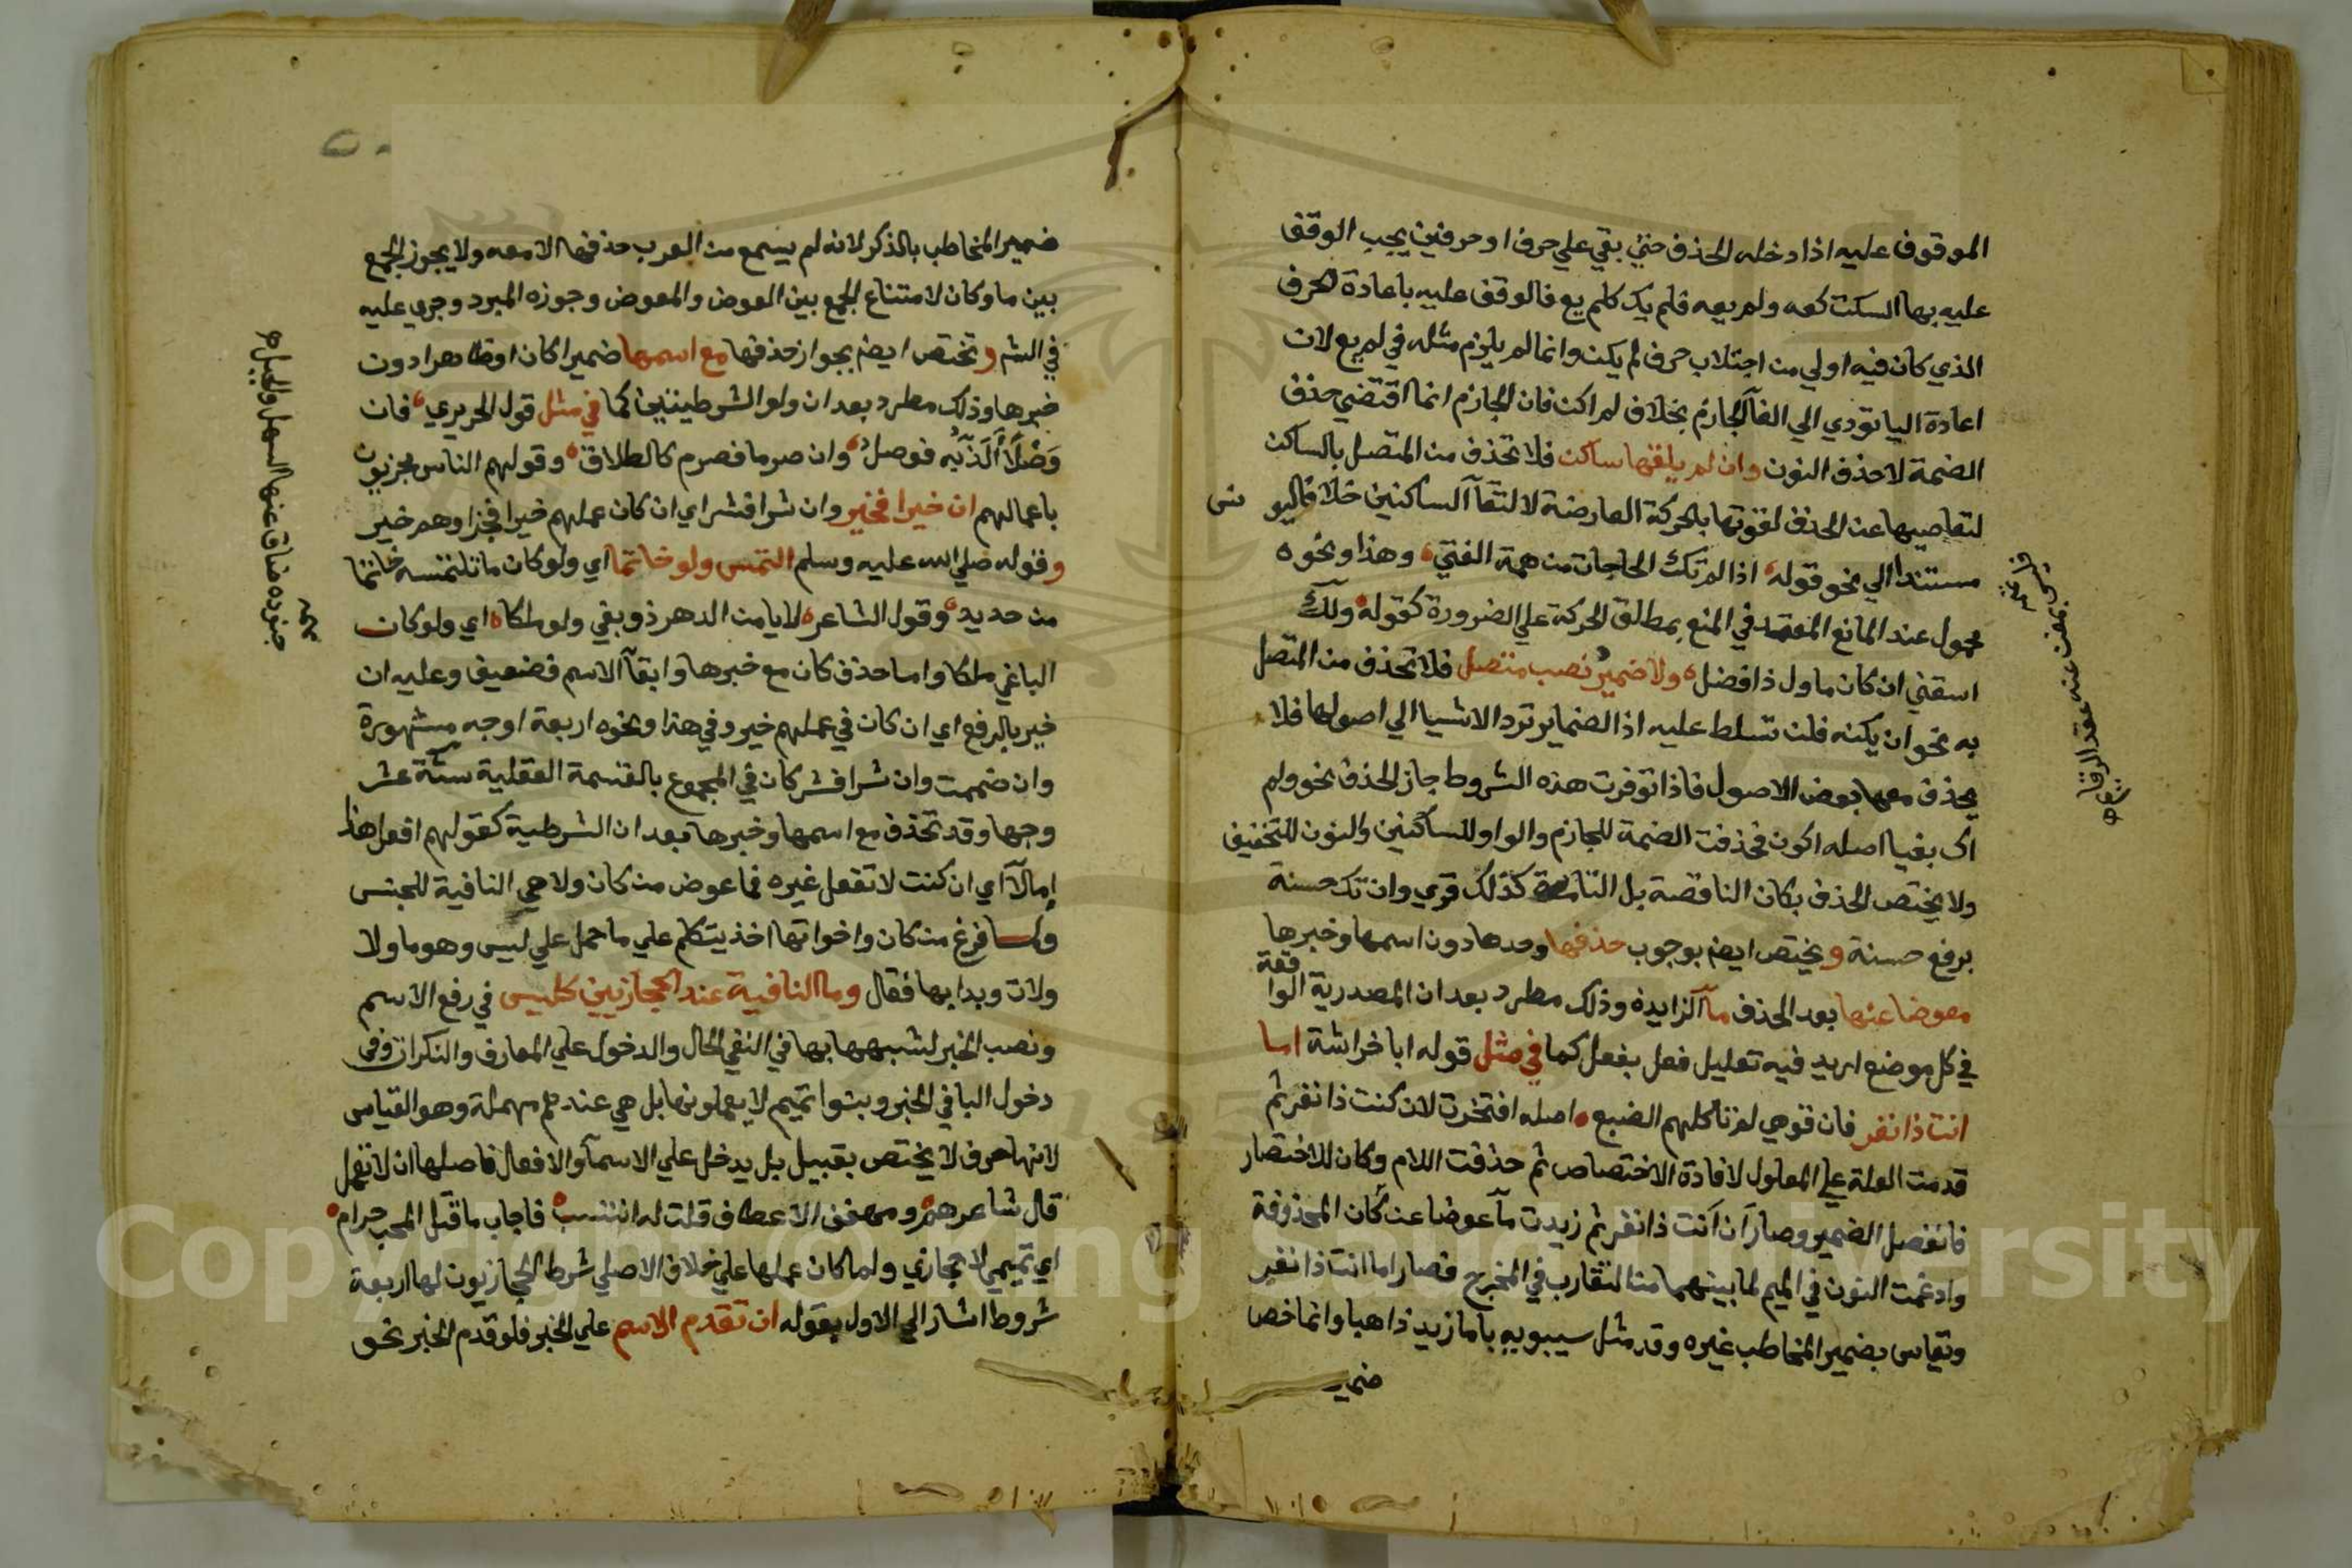 الموقوف عليه اذا دخله الحذف حتي بقي علي حرف او حرفين يجب الوقف
عليه بها السكت كعه ولم يعه فلم يك كلم يع فالوقف عليه باعادة الحرف
الذي كان فيه اولي من اجتلاب حرف لم يكن وانما لم يلزم مثله في لم يع لان
اعادة اليا تودي الي الغآ الجازم بخلاف لم اكن فان الجازم انما اقتضي حذف
الضمة لا حذف النون وان لم يلقها ساكن فلا تحذف من المتصل بالساكن
لتعاصيها عن الحذف لقوتها بالحركة العارضة لالتقآ الساكنين خلافا ليونس
مستندا الي نحو قوله اذا لم تك الحاجات من همة الفتي وهذا ونحوه
محمول عند المانع المعتمد في المنع بمطلق الحركة علي الضرورة كقوله ولك
اسقني ان كان ماوك ذا فضل ولا ضمير نصب متصل فلا تحذف من المتصل
به نحو ان يكنه فلن تسلط عليه اذ الضماير ترد الاشيا الي اصولها فلا
يحذف معها بعض الاصول فاذا توفرت هذه الشروط جاز الحذف نحو ولم
اك بغيا اصله اكون فحذفت الضمة للجازم والواو للساكنين والنون للتخفيف
ولا يختص الحذف بكان الناقصة بل التامة كذلك قوي وان تك حسنة
برفع حسنة ويختص ايضا بوجوب حذفها وحدها دون اسمها وخبرها
معوضا عنها بعد الحذف مآ الزايدة وذلك مطرد بعد ان المصدرية الواقعة
في كل موضع اريد فيه تعليل فعل بفعل كما في مثل قوله ابا خراشة اما
انت ذا نفر فان قومي لم تاكلهم الضبع اصله افتخرت لان كنت ذا نفر ثم
قدمت العلة علي المعلول لافادة الاختصاص ثم حذفت اللام وكان للاختصار
فانفصل الضمير وصار ان انت ذا نفر ثم زيدت مآ عوضا عن كان المحذوفة
وادغمت النون في الميم لما بينهما من التقارب في المخرج فصار اما انت ذا نفر
ويقاس بضمير المخاطب غيره وقد مثل سيبويه باما زيد ذاهبا وانما خص
ضمير
ضمير المخاطب بالذكر لانه لم يسمع من العرب حذفها الا معه ولا يجوز الجمع
بين ما وكان لامتناع الجمع بين العوض والمعوض وجوزه المبرد وجري عليه
في الشر وتختص ايضا بجواز حذفها مع اسمها ضميرا كان او ظاهرا دون
خبرها وذلك مطرد بعد ان ولو الشرطيتين كما في مثل قول الحريري فان
وصلا الذ به فوصل وان صرما فصرم كالطلاق وقولهم الناس مجزيون
باعمالهم ان خيرا فخير وان شرا فشر اي ان كان عملهم خيرا فجزاوهم خير
وقوله صلي الله عليه وسلم التمس ولو خاتما اي ولو كان ما تلتمسه خاتما
من حديد وقول الشاعر لا يامن الدهر ذو بغي ولو ملكا اي ولو كان
الباغي ملكا واما حذف كان مع خبرها وابقآ الاسم فضعيف وعليه ان
خير بالرفع اي ان كان في عملهم خير وفي هذا ونحوه اربعة اوجه مشهورة
وان ضممت وان شرا فشر كان في المجموع بالقسمة العقلية ستة عشر
وجها وقد تحذف مع اسمها وخبرها بعد ان الشرطية كقولهم افعل هذا
اما لا اي ان كنت لا تفعل غيره فما عوض من كان ولا هي النافية للجنس
ولما فرغ من كان واخواتها اخذ يتكلم علي ما حمل علي ليس وهو ما ولا
ولات وبدا بها فقال وما النافية عند الحجازيين كليس في رفع الاسم
ونصب الخبر لشبهها بها في النفي للحال والدخول علي المعارف والنكرات وفي
دخول البا في الخبر وبنوا تميم لا يعملونها بل هي عندهم مهملة وهو القياس
لانها حرف لا يختص بقبيل بل يدخل علي الاسمآ والافعال فاصلها ان لا تعمل
قال شاعرهم ومهفهف الاعطاف قلت له انتسب فاجاب ما قتل المحب حرام
اي تميمي لا حجازي ولما كان عملها علي خلاف الاصلي شرط الحجازيون لها اربعة
شروط اشار الي الاول بقوله ان تقدم الاسم علي الخبر فلو قدم الخبر نحو
فليس بمغن عنه عقد الرتايم
جنوده ضاق عنها السهل والجبل